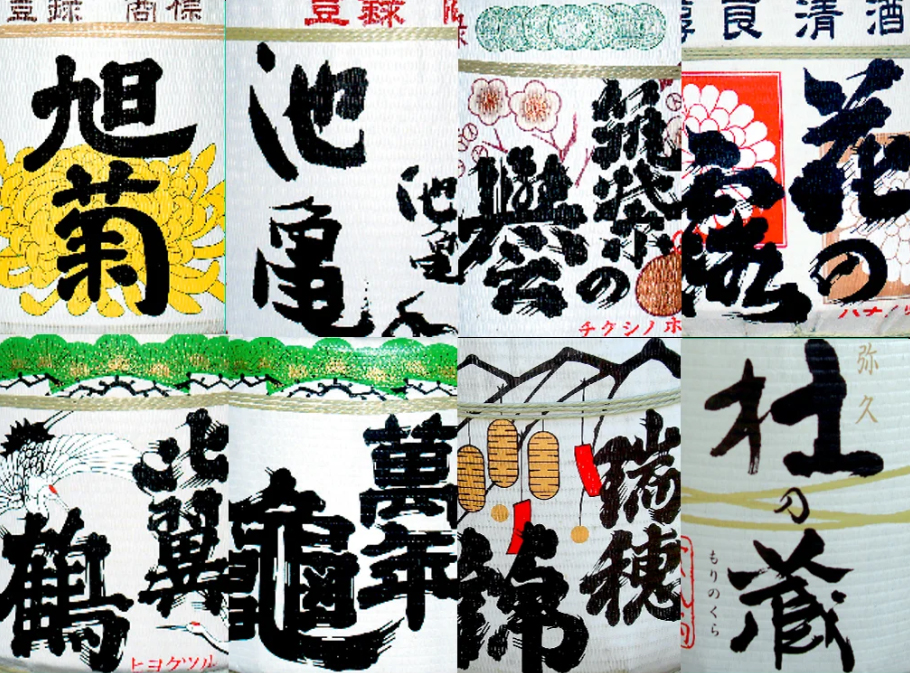 登録 商標
旭菊
登録
池亀
池亀
筑紫の
譽
チクシノホ
良清酒
花の
露
比翼
鶴
ヒヨクツル
萬年
龜
瑞穂
錦
弥久
杜の蔵
もりのくら